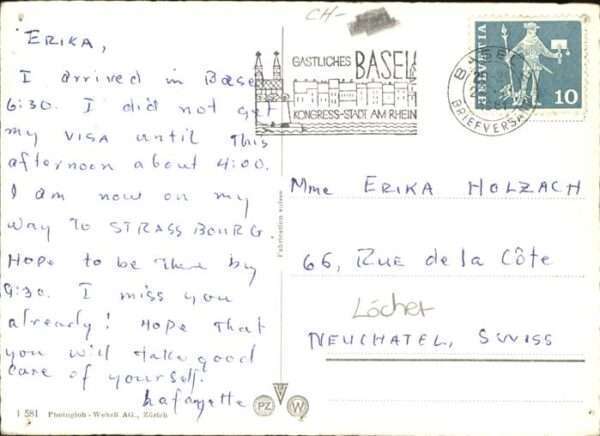 ERIKA,
I arrived in Basel
6:30. I did not get
my VISA until This
afternoon about 4:00.
I am now on my
way to STRASSBOURG.
Hope to be There by
9:30. I miss you
already! Hope That
you will take good
care of yourself.
Lafayette
1 581 Photoglob-Wehrli AG., Zürich
CH-
GASTLICHES BASEL
KONGRESS-STADT AM RHEIN
BRIEFVERSAND
HELVETIA
10
Mme ERIKA HOLZACH
66, RUE de la Côte
Löcher
NEUCHATEL, SWISS
PZ W